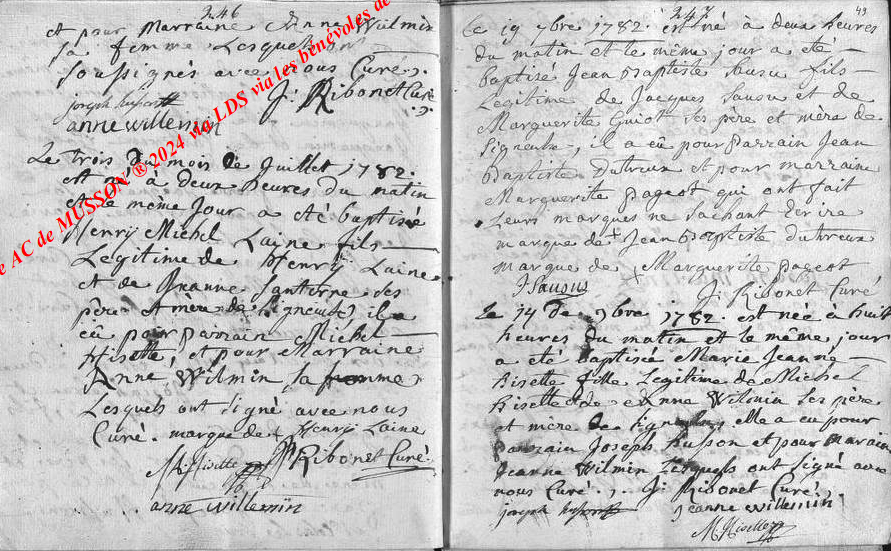 246
et pour Marraine Anne Wilmin
sa femme Lesquels ont
soussignés avec nous Curé ./.
joseph husson J: Ribonet Curé
anne willemin
Le trois du mois de Juillet 1782.
est né à deux heures du matin
et le même jour a eté baptisé
Henry Michel Laine fils
Legitime de Henry Laine
et de Jeanne Santerne ses
père et mère de Signeulx, il a
eû pour parrain Michel
Hisette, et pour Marraine
Anne Wilmin sa femme
Lesquels ont signé avec nous
Curé. marque de + Henry Laine
M: Hisette J: Ribonet Curé
anne willemin
AC de MUSSON ® 2024 via LDS via les bénévoles de
247
49
Le 19 7bre 1782. est né à deux heures
du matin et le même jour a eté
baptisé Jean Baptiste Susu fils
Legitime de Jacques Sausu et de
Marguerite Guiot ses père et mère de
Signeulx, il a eû pour parrain Jean
Baptiste Dutreux et pour marraine
Marguerite pageot qui ont fait
Leurs marques ne sachant ecrire
marque de + Jean Baptiste Dutreux
marque de + Marguerite pageot
J Sausus J: Ribonet Curé
Le 14 de 9bre 1782. est née à huit
heures du matin et le même jour
a été baptisée Marie Jeanne
hisette fille Legitime de Michel
hisette et de Anne Wilmin ses père
et mère de Signeulx, elle a eu pour
parrain Joseph husson et pour Maraine
Jeanne Wilmin Lesquels ont signé avec
nous Curé ./. J: Ribonet Curé
joseph husson jeanne willemin
M. Hisette